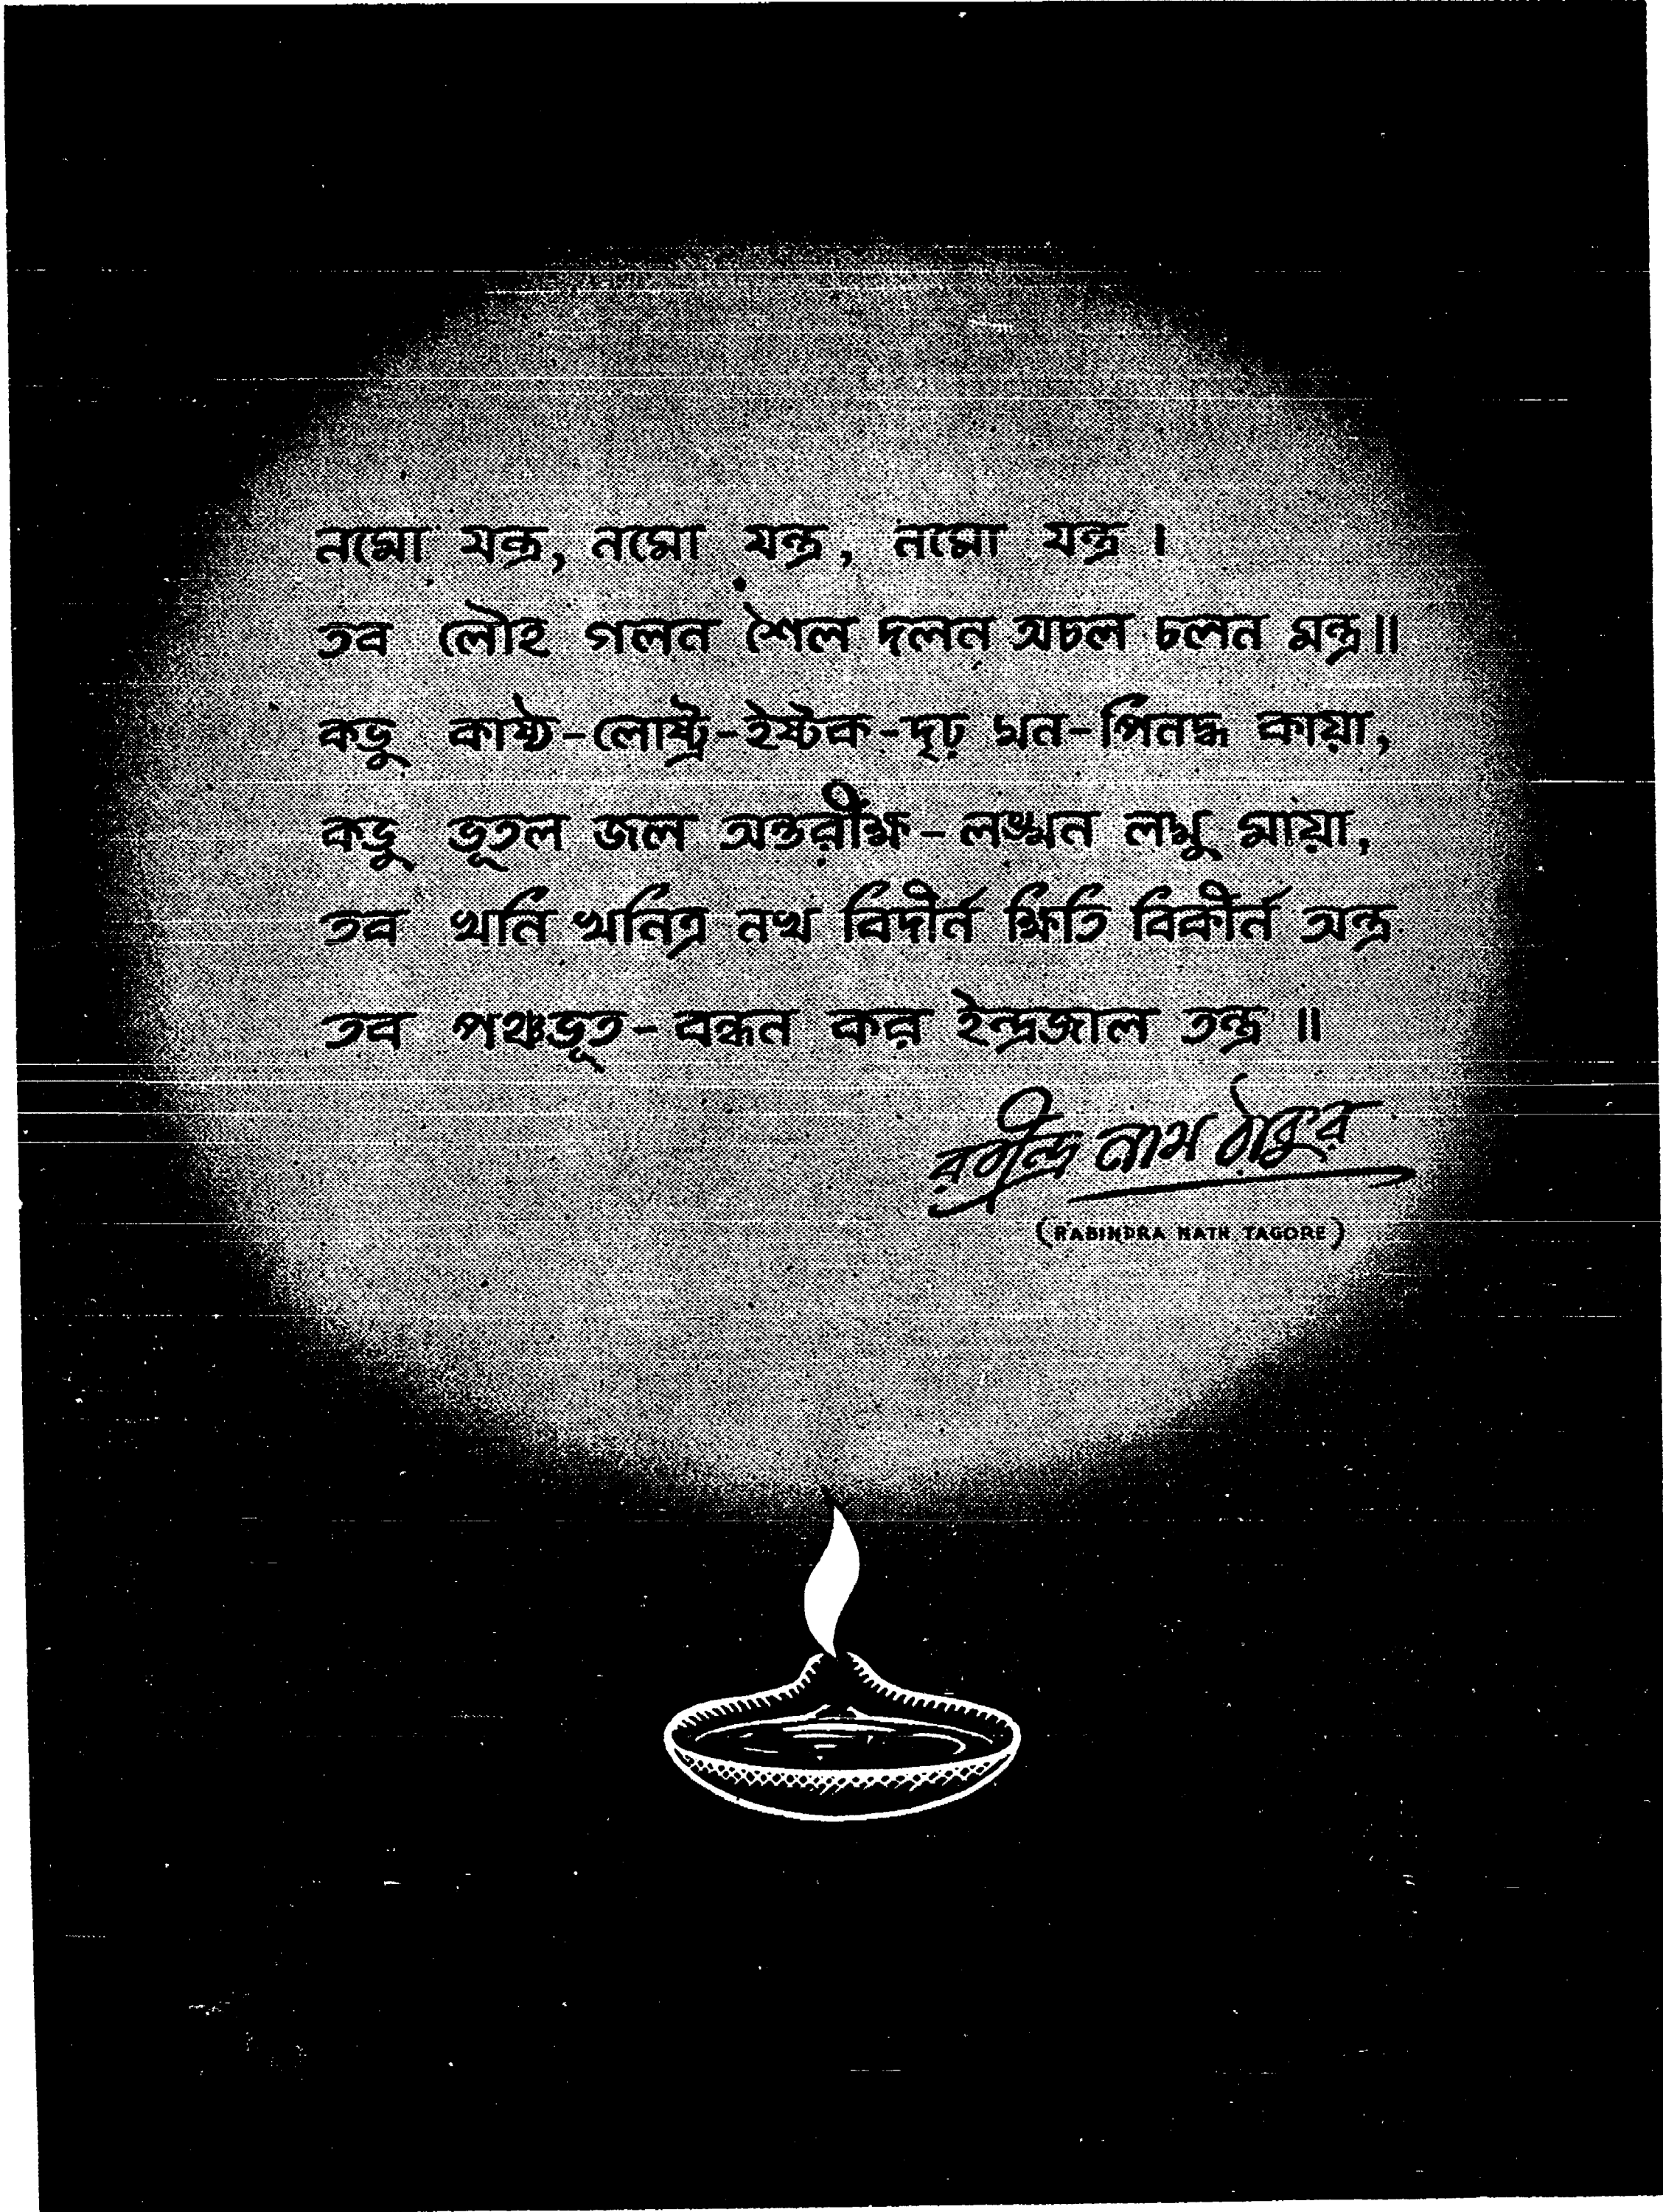 নমো যন্ত্র, নমো যন্ত্র, নমো যন্ত্র ।
তব লৌহ গলন শৈল দলন অচল চলন মন্ত্র॥
কভু কাষ্ঠ-লোষ্ট্র-ইষ্টক-দৃঢ় ঘন-পিনদ্ধ কায়া,
কভু ভূতল জল অন্তরীক্ষ-লঙ্ঘন লঘু মায়া,
তব খনি খনিত্র নখ বিদীর্ন ক্ষিতি বিকীর্ন অন্ত্র
তব পঞ্চভূত-বন্ধন কর ইন্দ্রজাল তন্ত্র ॥
রবীন্দ্র নাথ ঠাকুর
(RABINDRA NATH TAGORE)